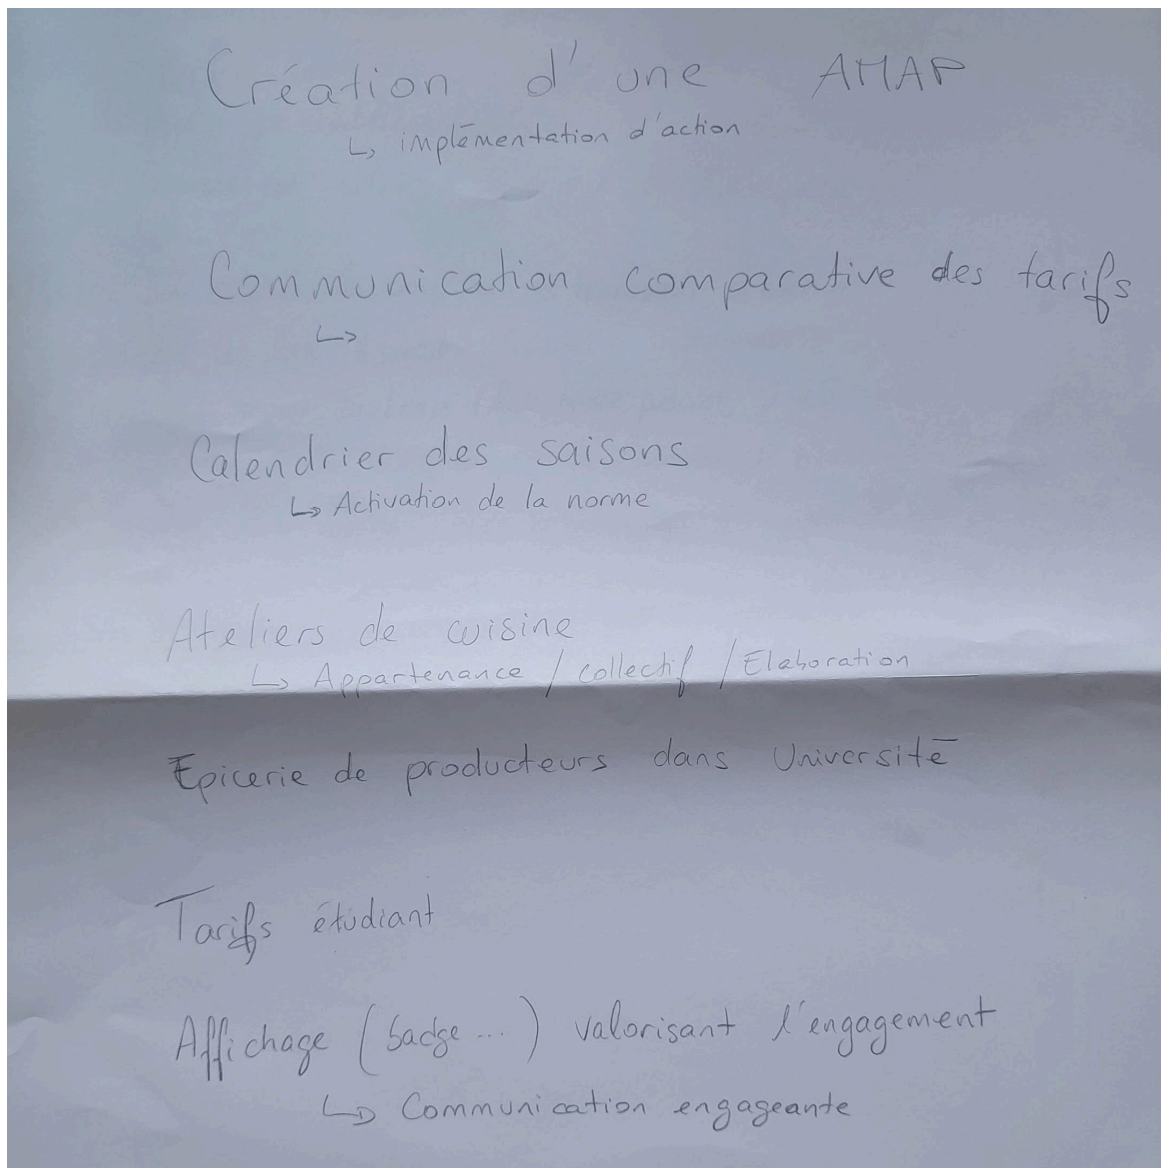 Création d'une AMAP
↳ implémentation d'action
Communication comparative des tarifs
↳
Calendrier des saisons
↳ Activation de la norme
Ateliers de cuisine
↳ Appartenance / collectif / Elaboration
Epicerie de producteurs dans Université
Tarifs étudiant
Affichage (badge ...) valorisant l'engagement
↳ Communication engageante